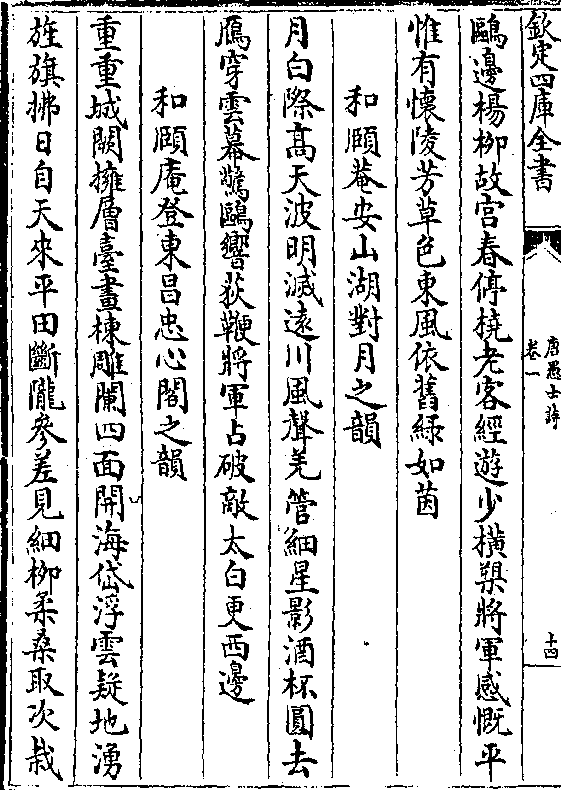 欽定四庫全書
唐愚士詩
卷一
十四
鷗邊楊柳故宫春停橈老客經遊少橫槊將軍感慨平
惟有懷陵芳草色東風依舊緑如茵
和頤菴安山湖對月之韻
月白際髙天波明滅逺川風聲羌管細星影酒杯圓去
鴈穿雲幕驚鷗響荻鞭將軍占破敵太白更西邊
和頤庵登東昌忠心閣之韻
重重城闕擁層臺畫棟雕闌四面開海岱浮雲疑地湧
旌旗拂日自天來平田斷隴參差見細柳柔桑取次栽